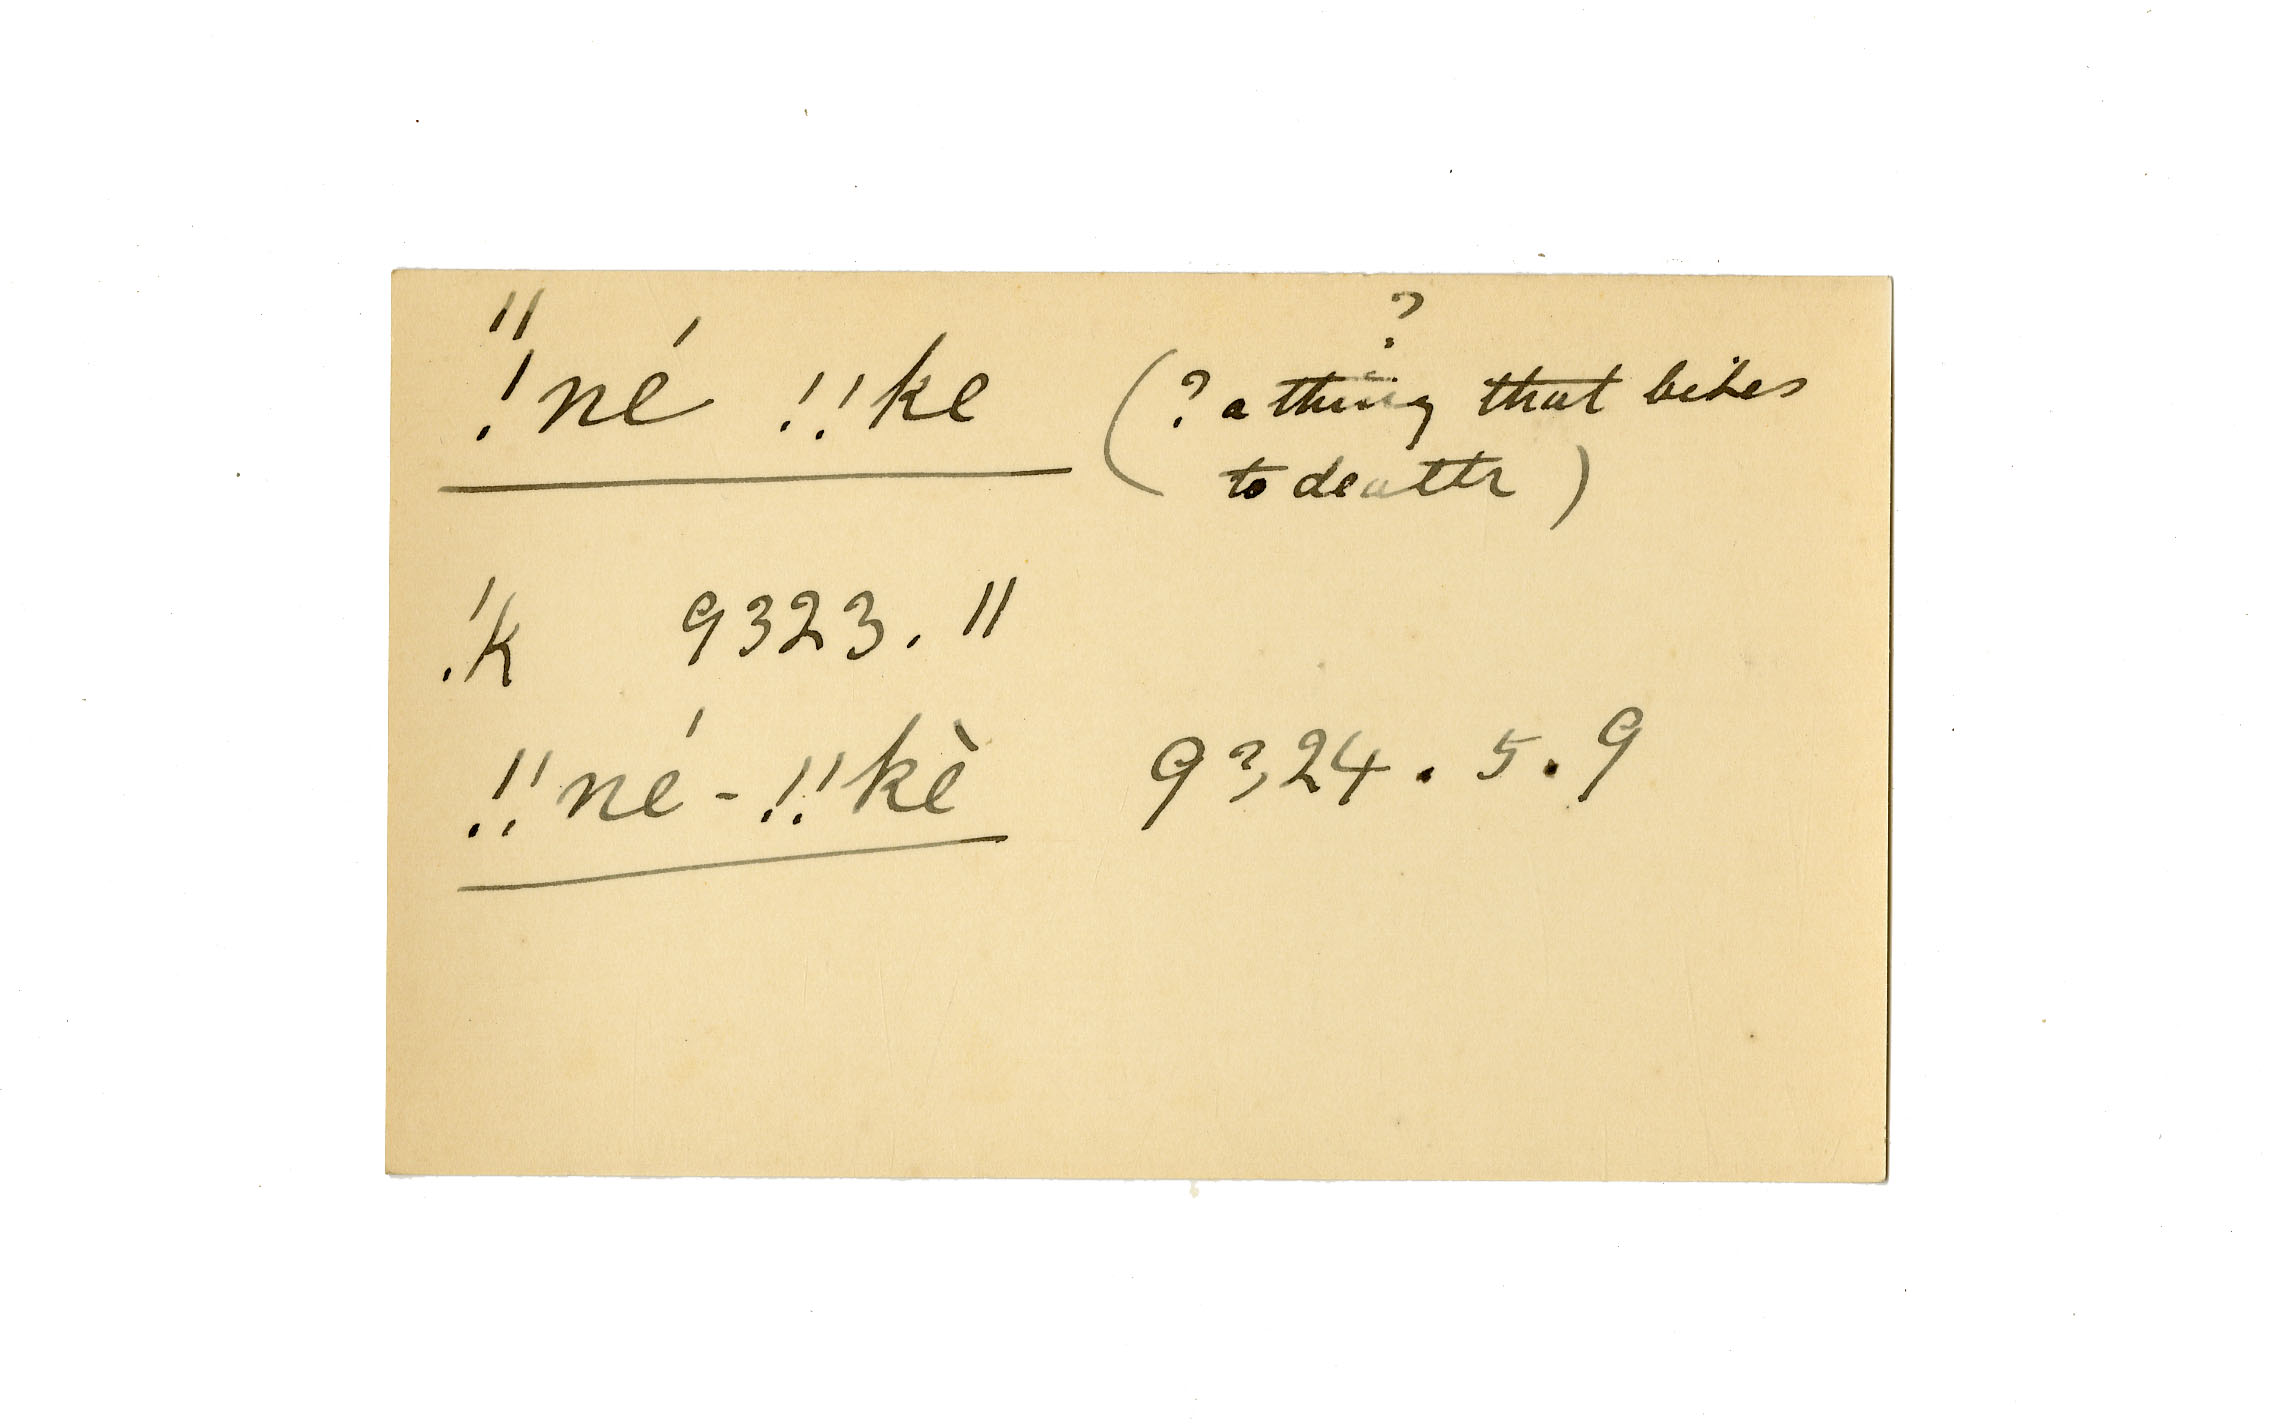 "
!né !!ke (? a thing that bites
?
to death)
!k 9323. 11
!!né-!!kè 9324. 5. 9